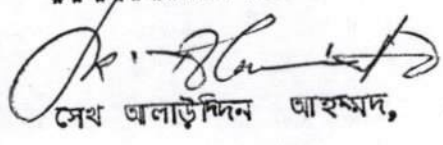 সেখ আলাউদ্দিন আহম্মদ,